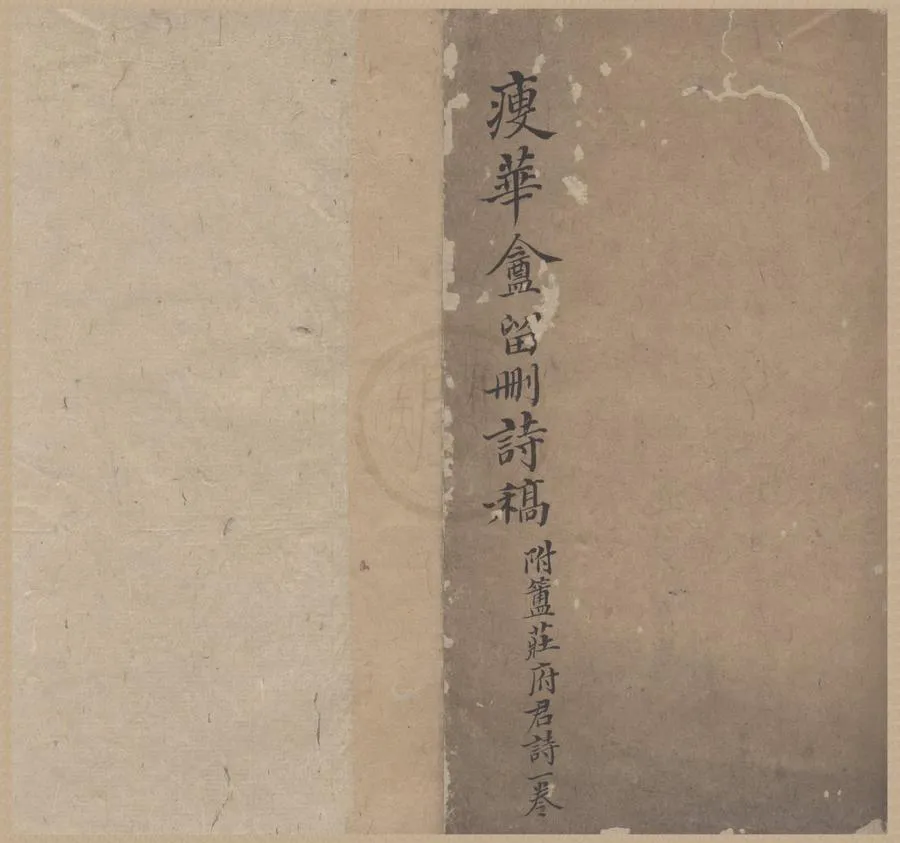 痩華盦留刪詩稿
附簠莊府君詩一卷